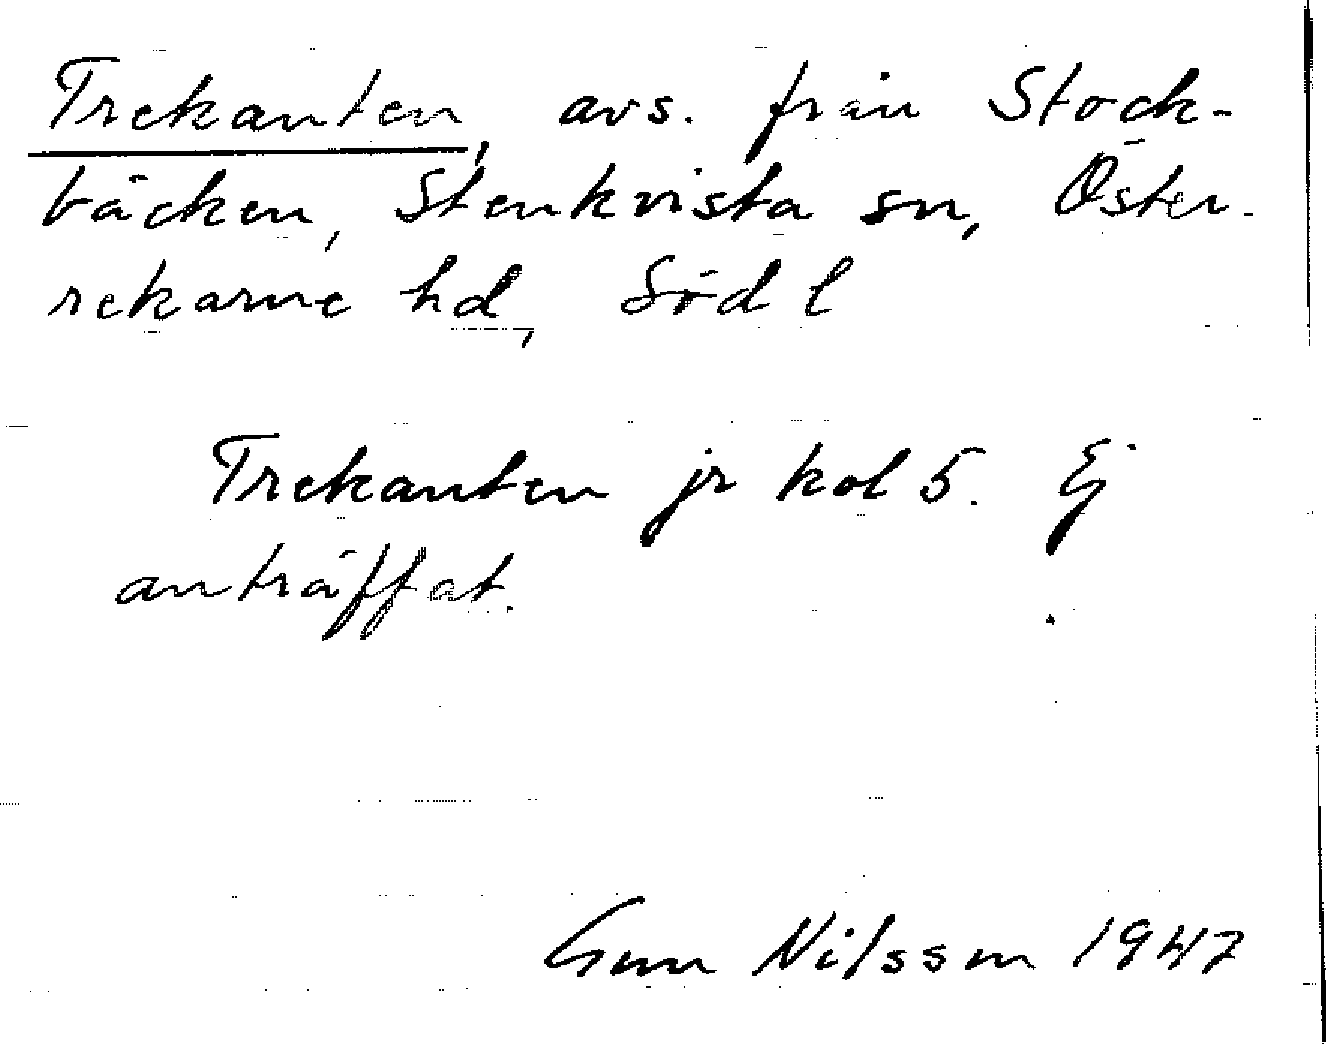 Trekanten, avs. från Stock-
bäcken, Stenkvista sn, Öster-
rekarne hd, Söd l
Trekanten jr kol 5. Ej
anträffat.
Gun Nilsson 1947